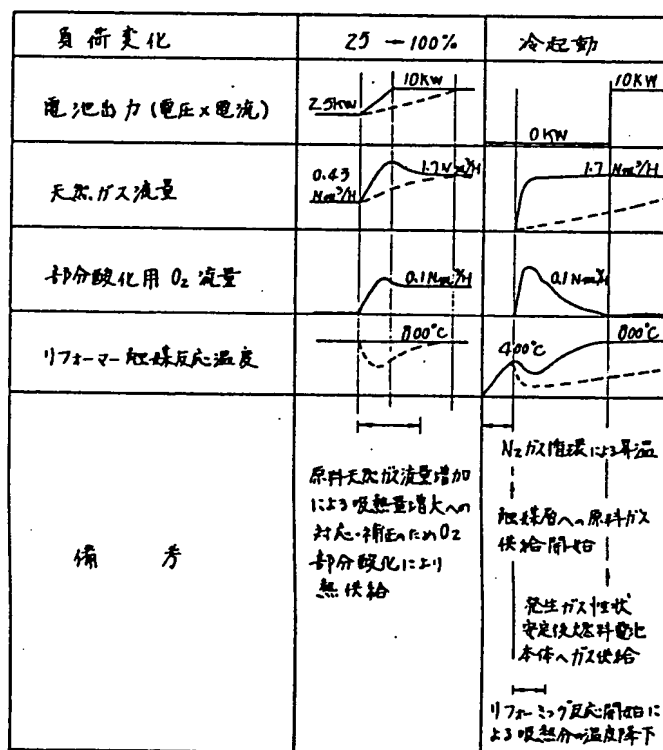 負荷変化
25 → 100%
冷起動
電池出力 (電圧×電流)
2.5KW
10KW
0KW
10KW
天然ガス流量
0.43
Nm³/H
1.7Nm³/H
1.7 Nm³/H
部分酸化用 O₂ 流量
0.1Nm³/H
0.1Nm³/H
リフォーマー触媒反応温度
800℃
400℃
800℃
備考
原料天然ガス流量増加
による吸熱量増大への
対応・補正のためO₂
部分酸化により
熱供給
N₂ガス循環による昇温
触媒層への原料ガス
供給開始
発生ガス性状
安定後燃料電池
本体へガス供給
リフォーミング反応開始に
よる吸熱分の温度降下